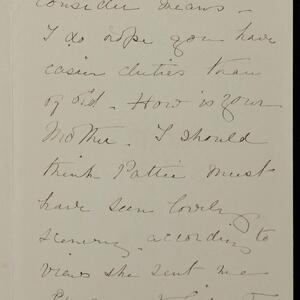 consider means -
I do hope you have
easier duties than
of old - How is your
Mother. I should
think Pattie must
have seen lovely
scenery, according to
views she sent me